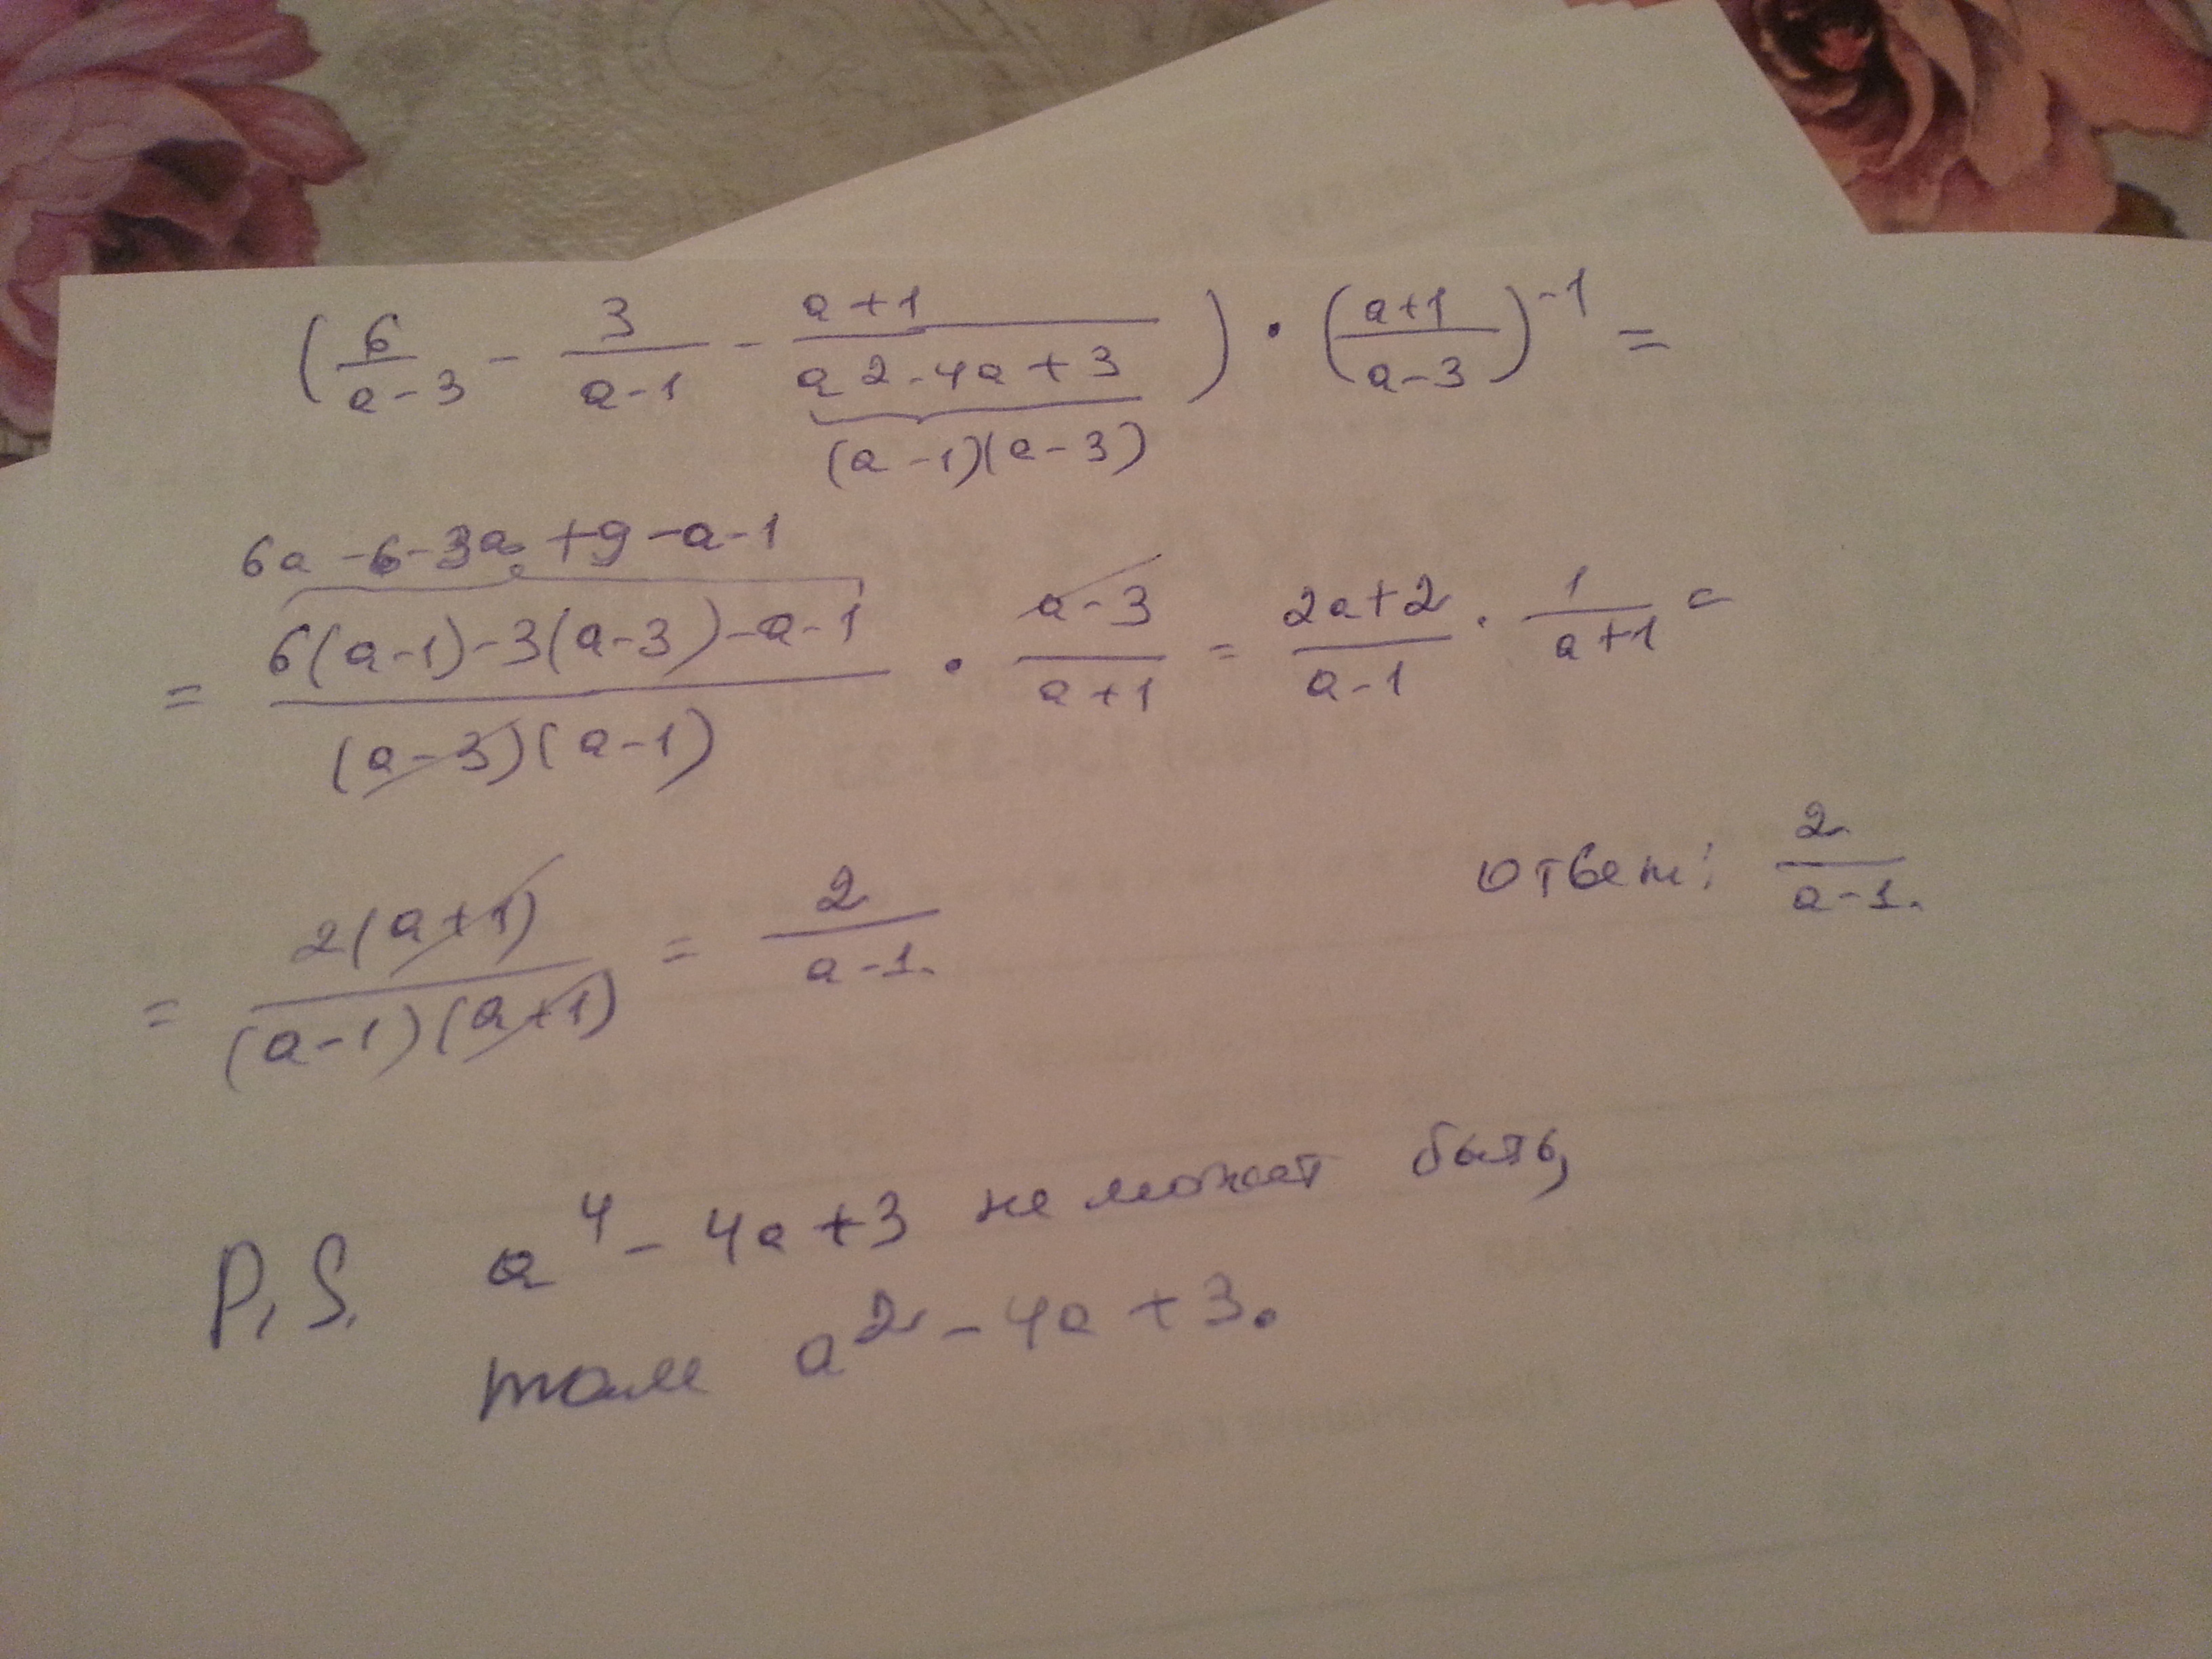 (6/(a-3) - 3/(a-1) - (a+1)/(a2-4a+3)) · ((a+1)/(a-3))^-1 =
(a-1)(a-3)
6a-6-3a+9-a-1
= (6(a-1)-3(a-3)-a-1)/((a-3)(a-1)) · (a-3)/(a+1) = (2a+2)/(a-1) · 1/(a+1) =
= 2(a+1)/((a-1)(a+1)) = 2/(a-1).
ответ: 2/(a-1).
P.S. a^4-4a+3 не может быть,
там a^2-4a+3.